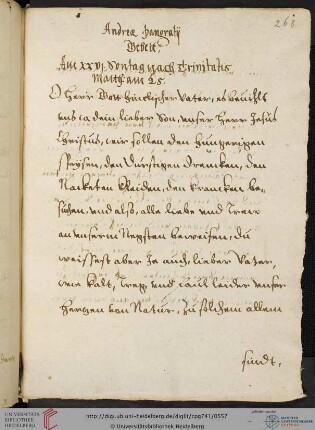 268.
Andreæ Pangratij
Gebeet.
Am XXVI. Sontag nach Trinitatis
Matth am 25.
O Herr Gott himlischer Vater, es beuihlt
uns ia dein lieber Son, unser Herr Jesus
Christus, wir sollen den hungerigen
speysen, den durstigen drencken, den
Nacketen kleiden, den krancken be-
suchen, und also, alle liebe und Trew
an unserm Negsten beweisen, du
weissest aber Ja auch, lieber Vater,
wie kalt, Treg, und laut leider unser
hertzen von Natur, zu solchem allem
sindt,
UNIVERSITÄTS-
BIBLIOTHEK
HEIDELBERG
http://digi.ub.uni-heidelberg.de/diglit/cpg741/0557
© Universitätsbibliothek Heidelberg